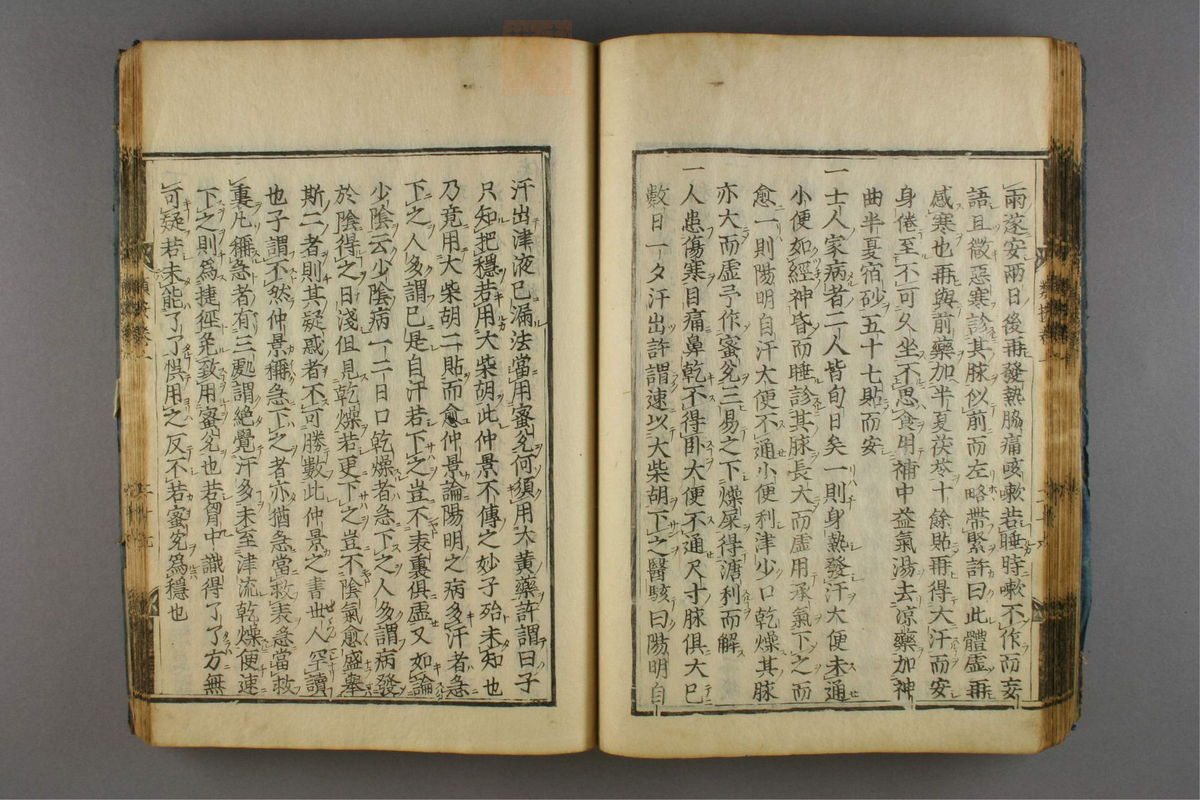 兩遂安兩日後再發熱脇痛咳嗽若睡時嗽不作而妄
語且微惡寒診其脉似前而左略帶緊許曰此體虛再
感寒也再與前藥加半夏茯苓十餘貼再得大汗而安
身倦至不可久坐不思食用補中益氣湯去涼藥加神
曲半夏宿砂五十七貼而安
一士人家病者二人皆旬日矣一則身熱發汗大便未通
小便如經神昏而睡診其脉長大而虛用承氣下之而
愈一則陽明自汗大便不通小便利津少口乾燥其脉
亦大而虛予作蜜兊三易之下燥屎得溏利而解
一人患傷寒目痛鼻乾不得臥大便不通尺寸脉俱大已
數日一夕汗出許謂速以大柴胡下之醫駭曰陽明自
汗出津液已漏法當用蜜兊何須用大黃藥許謂曰子
只知把穩若用大柴胡此仲景不傳之妙子殆未知也
乃竟用大柴胡二貼而愈仲景論陽明之病多汗者急
下之人多謂已是自汗若下之豈不表裏俱虛又如論
少陰云少陰病一二日口乾燥者急下之人多謂病發
於陰得之日淺但見乾燥若更下之豈不陰氣愈盛舉
斯二者則其疑惑者不可勝數此仲景之書世人罕讀
也予謂不然仲景稱急下之者亦猶急當救表急當救
裏凡稱急者有三處謂纔覺汗多未至津流乾燥便速
下之則爲捷徑免致用蜜兊也若胷中識得了了方無
可疑若未能了了惧用之反不若蜜兊爲穩也